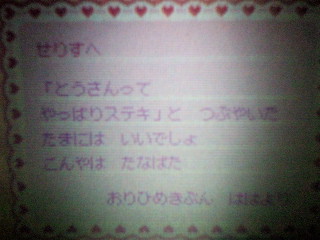 せりすへ
「とうさんって
やっぱりステキ」と つぶやいた
たまには いいでしょ
こんやは たなばた
おりひめきぶん ははより